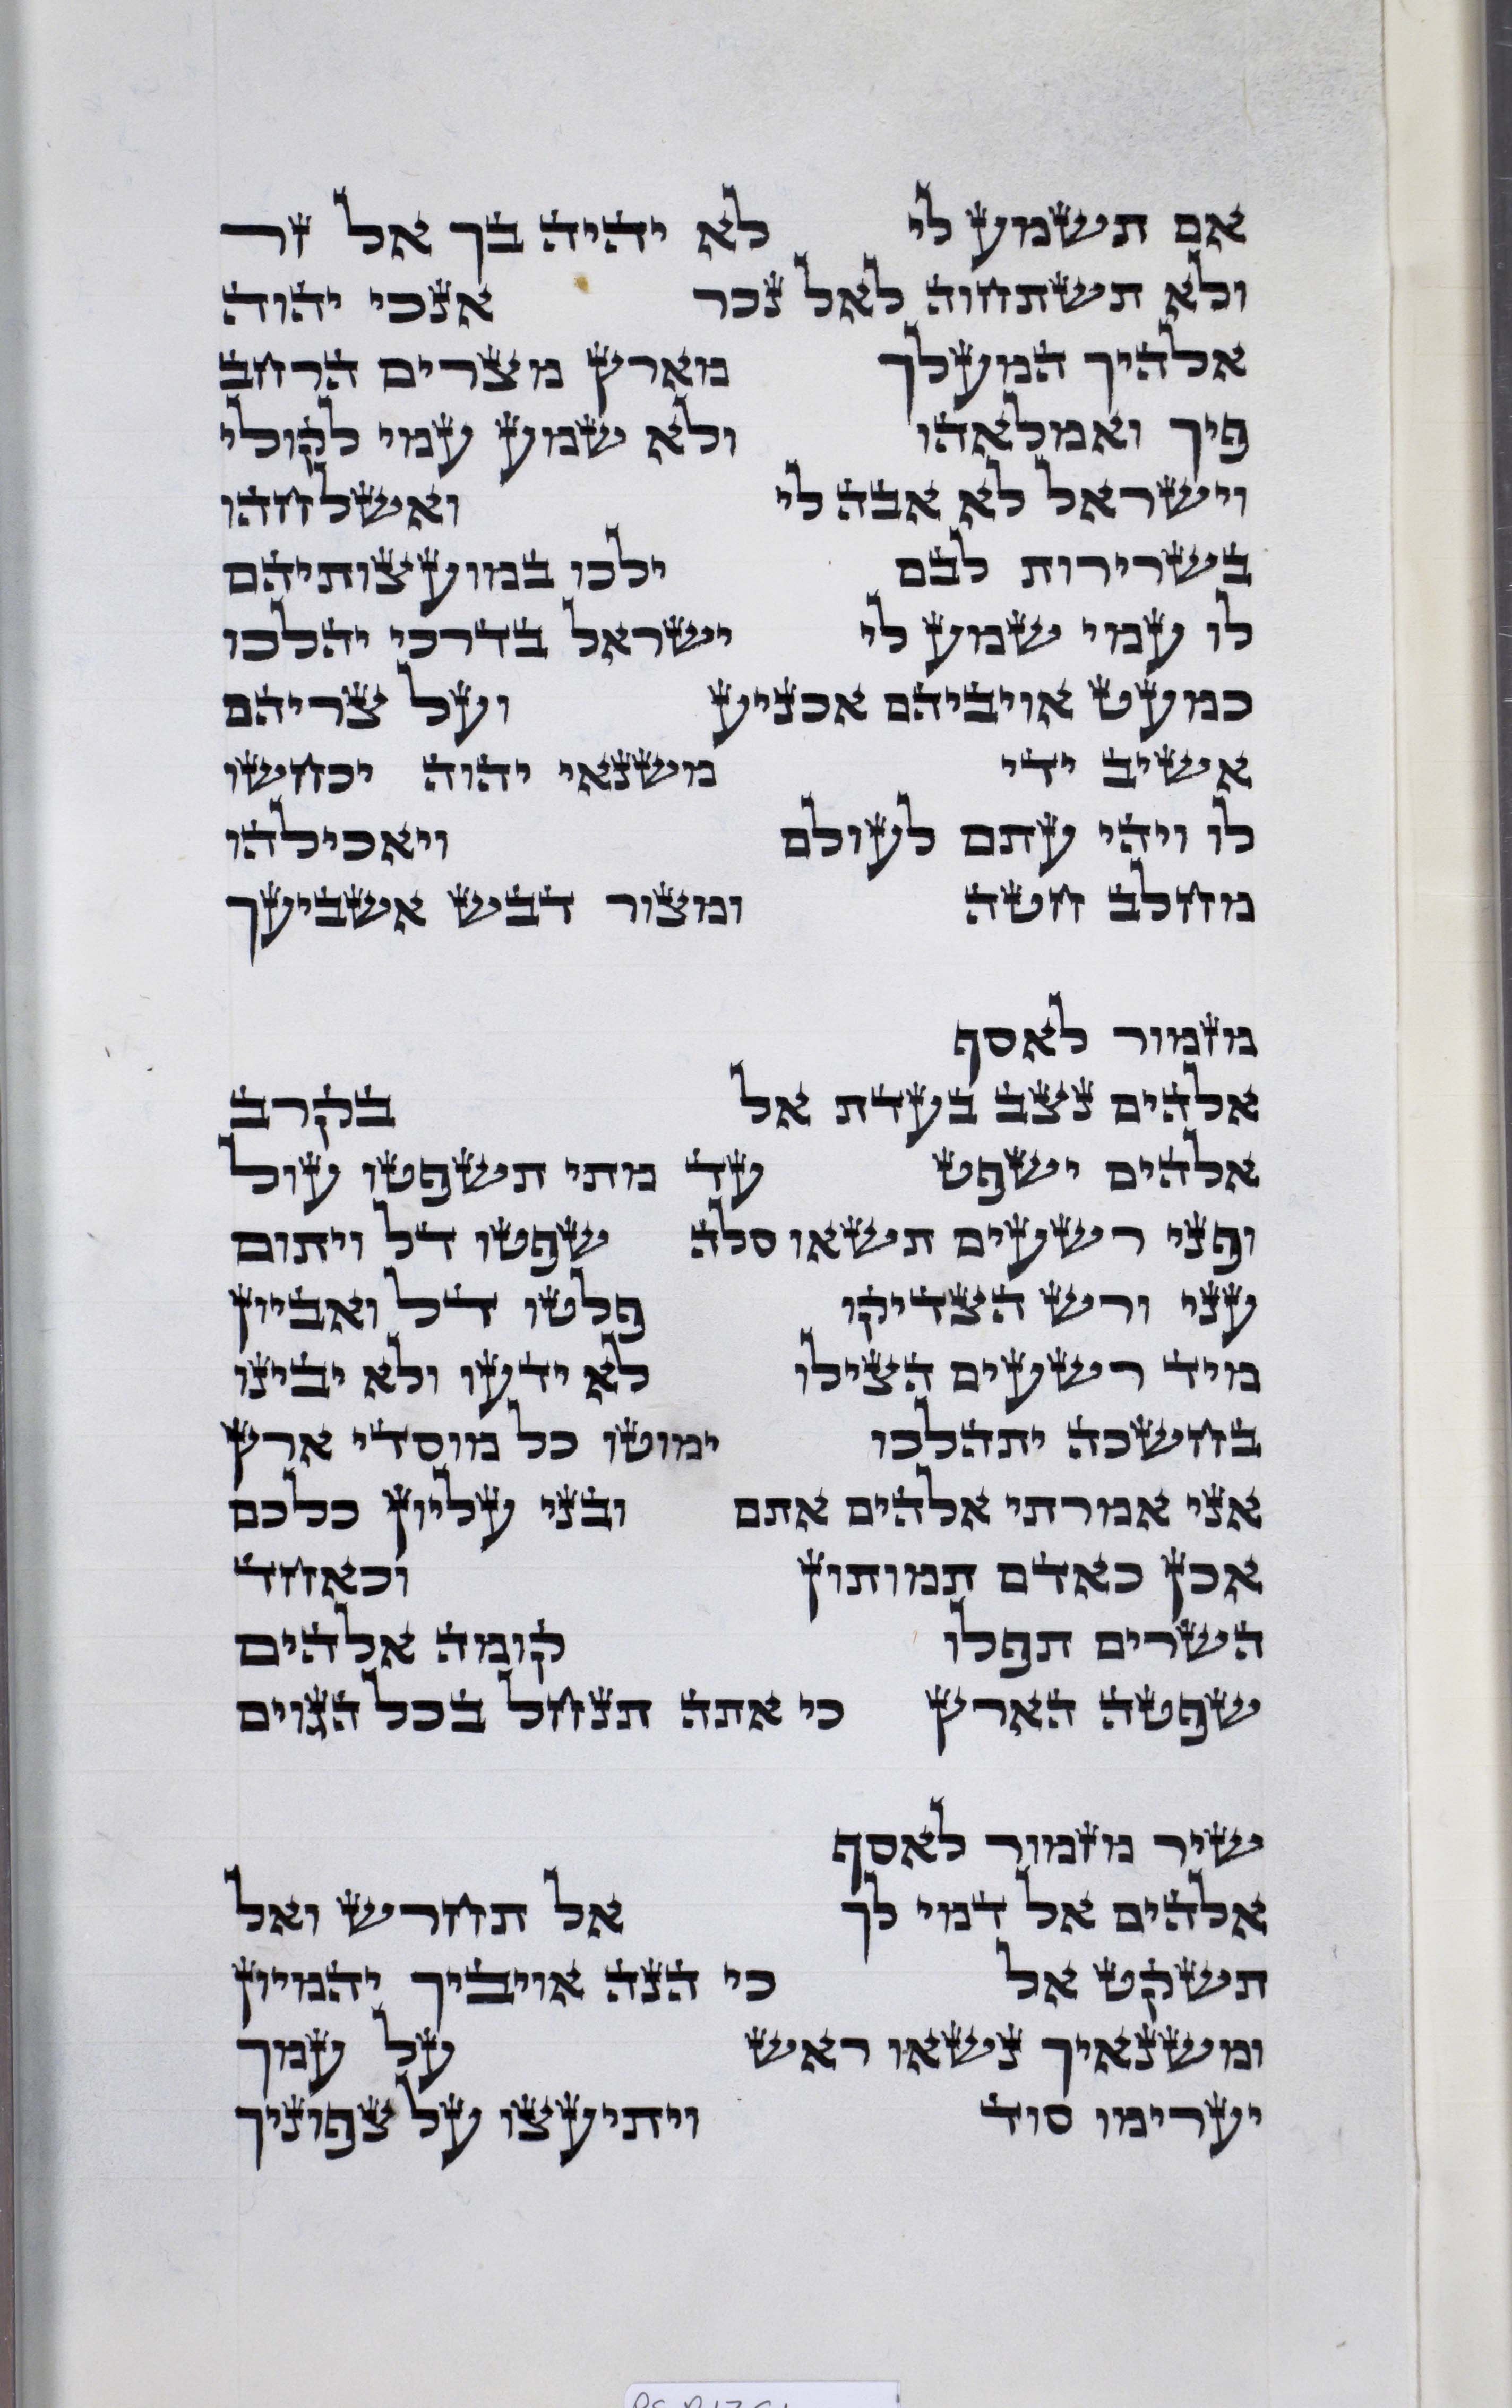 אם תשמע לי לא יהיה בך אל זר
ולא תשתחוה לאל נכר אנכי יהוה
אלהיך המעלך מארץ מצרים הרחב
פיך ואמלאהו ולא שמע עמי לקולי
וישראל לא אבה לי ואשלחהו
בשרירות לבם ילכו במועצותיהם
לו עמי שמע לי ישראל בדרכי יהלכו
כמעט אויביהם אכניע ועל צריהם
אשיב ידי משנאי יהוה יכחשו
לו ויהי עתם לעולם ויאכילהו
מחלב חטה ומצור דבש אשביעך
מזמור לאסף
אלהים נצב בעדת אל בקרב
אלהים ישפט עד מתי תשפטו עול
ופני רשעים תשאו סלה שפטו דל ויתום
עני ורש הצדיקו פלטו דל ואביון
מיד רשעים הצילו לא ידעו ולא יבינו
בחשכה יתהלכו ימוטו כל מוסדי ארץ
אני אמרתי אלהים אתם ובני עליון כלכם
אכן כאדם תמותון וכאחד
השרים תפלו קומה אלהים
שפטה הארץ כי אתה תנחל בכל הגוים
שיר מזמור לאסף
אלהים אל דמי לך אל תחרש ואל
תשקט אל כי הנה אויביך יהמיון
ומשנאיך נשאו ראש על עמך
יערימו סוד ויתיעצו על צפוניך